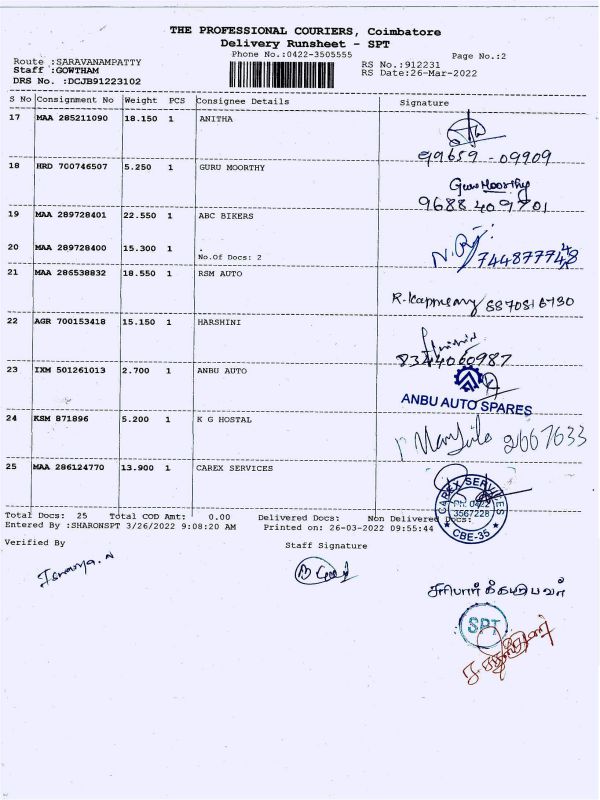 THE PROFESSIONAL COURIERS, Coimbatore
Delivery Runsheet - SPT
Phone No.:0422-3505555
Page No.:2
Route :SARAVANAMPATTY
Staff :GOWTHAM
DRS No. :DCJB91223102
RS No.:912231
RS Date:26-Mar-2022
S No Consignment No Weight PCS Consignee Details Signature
17 MAA 285211090 18.150 1 ANITHA
99659 - 09909
18 HRD 700746507 5.250 1 GURU MOORTHY
Guru Moorthy
9688 409701
19 MAA 289728401 22.550 1 ABC BIKERS
20 MAA 289728400 15.300 1 .
No.Of Docs: 2
21 MAA 286538832 18.550 1 RSM AUTO
22 AGR 700153418 15.150 1 HARSHINI
8344060987
23 IXM 501261013 2.700 1 ANBU AUTO
ANBU AUTO SPARES
24 KSM 871896 5.200 1 K G HOSTAL
2667633
25 MAA 286124770 13.900 1 CAREX SERVICES
CAREX SERVICES
Ph: 0422
3567228
CBE-35
Total Docs: 25 Total COD Amt: 0.00 Delivered Docs: Non Delivered Docs:
Entered By :SHARONSPT 3/26/2022 9:08:20 AM Printed on: 26-03-2022 09:55:44
Verified By
Staff Signature
சரிபார்க்கபடுபவர்
SPT